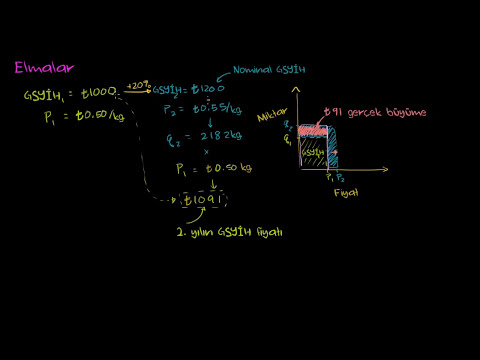 Elmalar
GSYİH₁ = ₺1000
+20%
GSYİH₂ = ₺1200
Nominal GSYİH
P₁ = ₺0.50/kg
P₂ = ₺0.55/kg
q₂ = 2182 kg
×
P₁ = ₺0.50 kg
₺1091
2. yılın GSYİH fiyatı
₺91 gerçek büyüme
Miktar
q₂
q₁
GSYİH
P₁ P₂
Fiyat